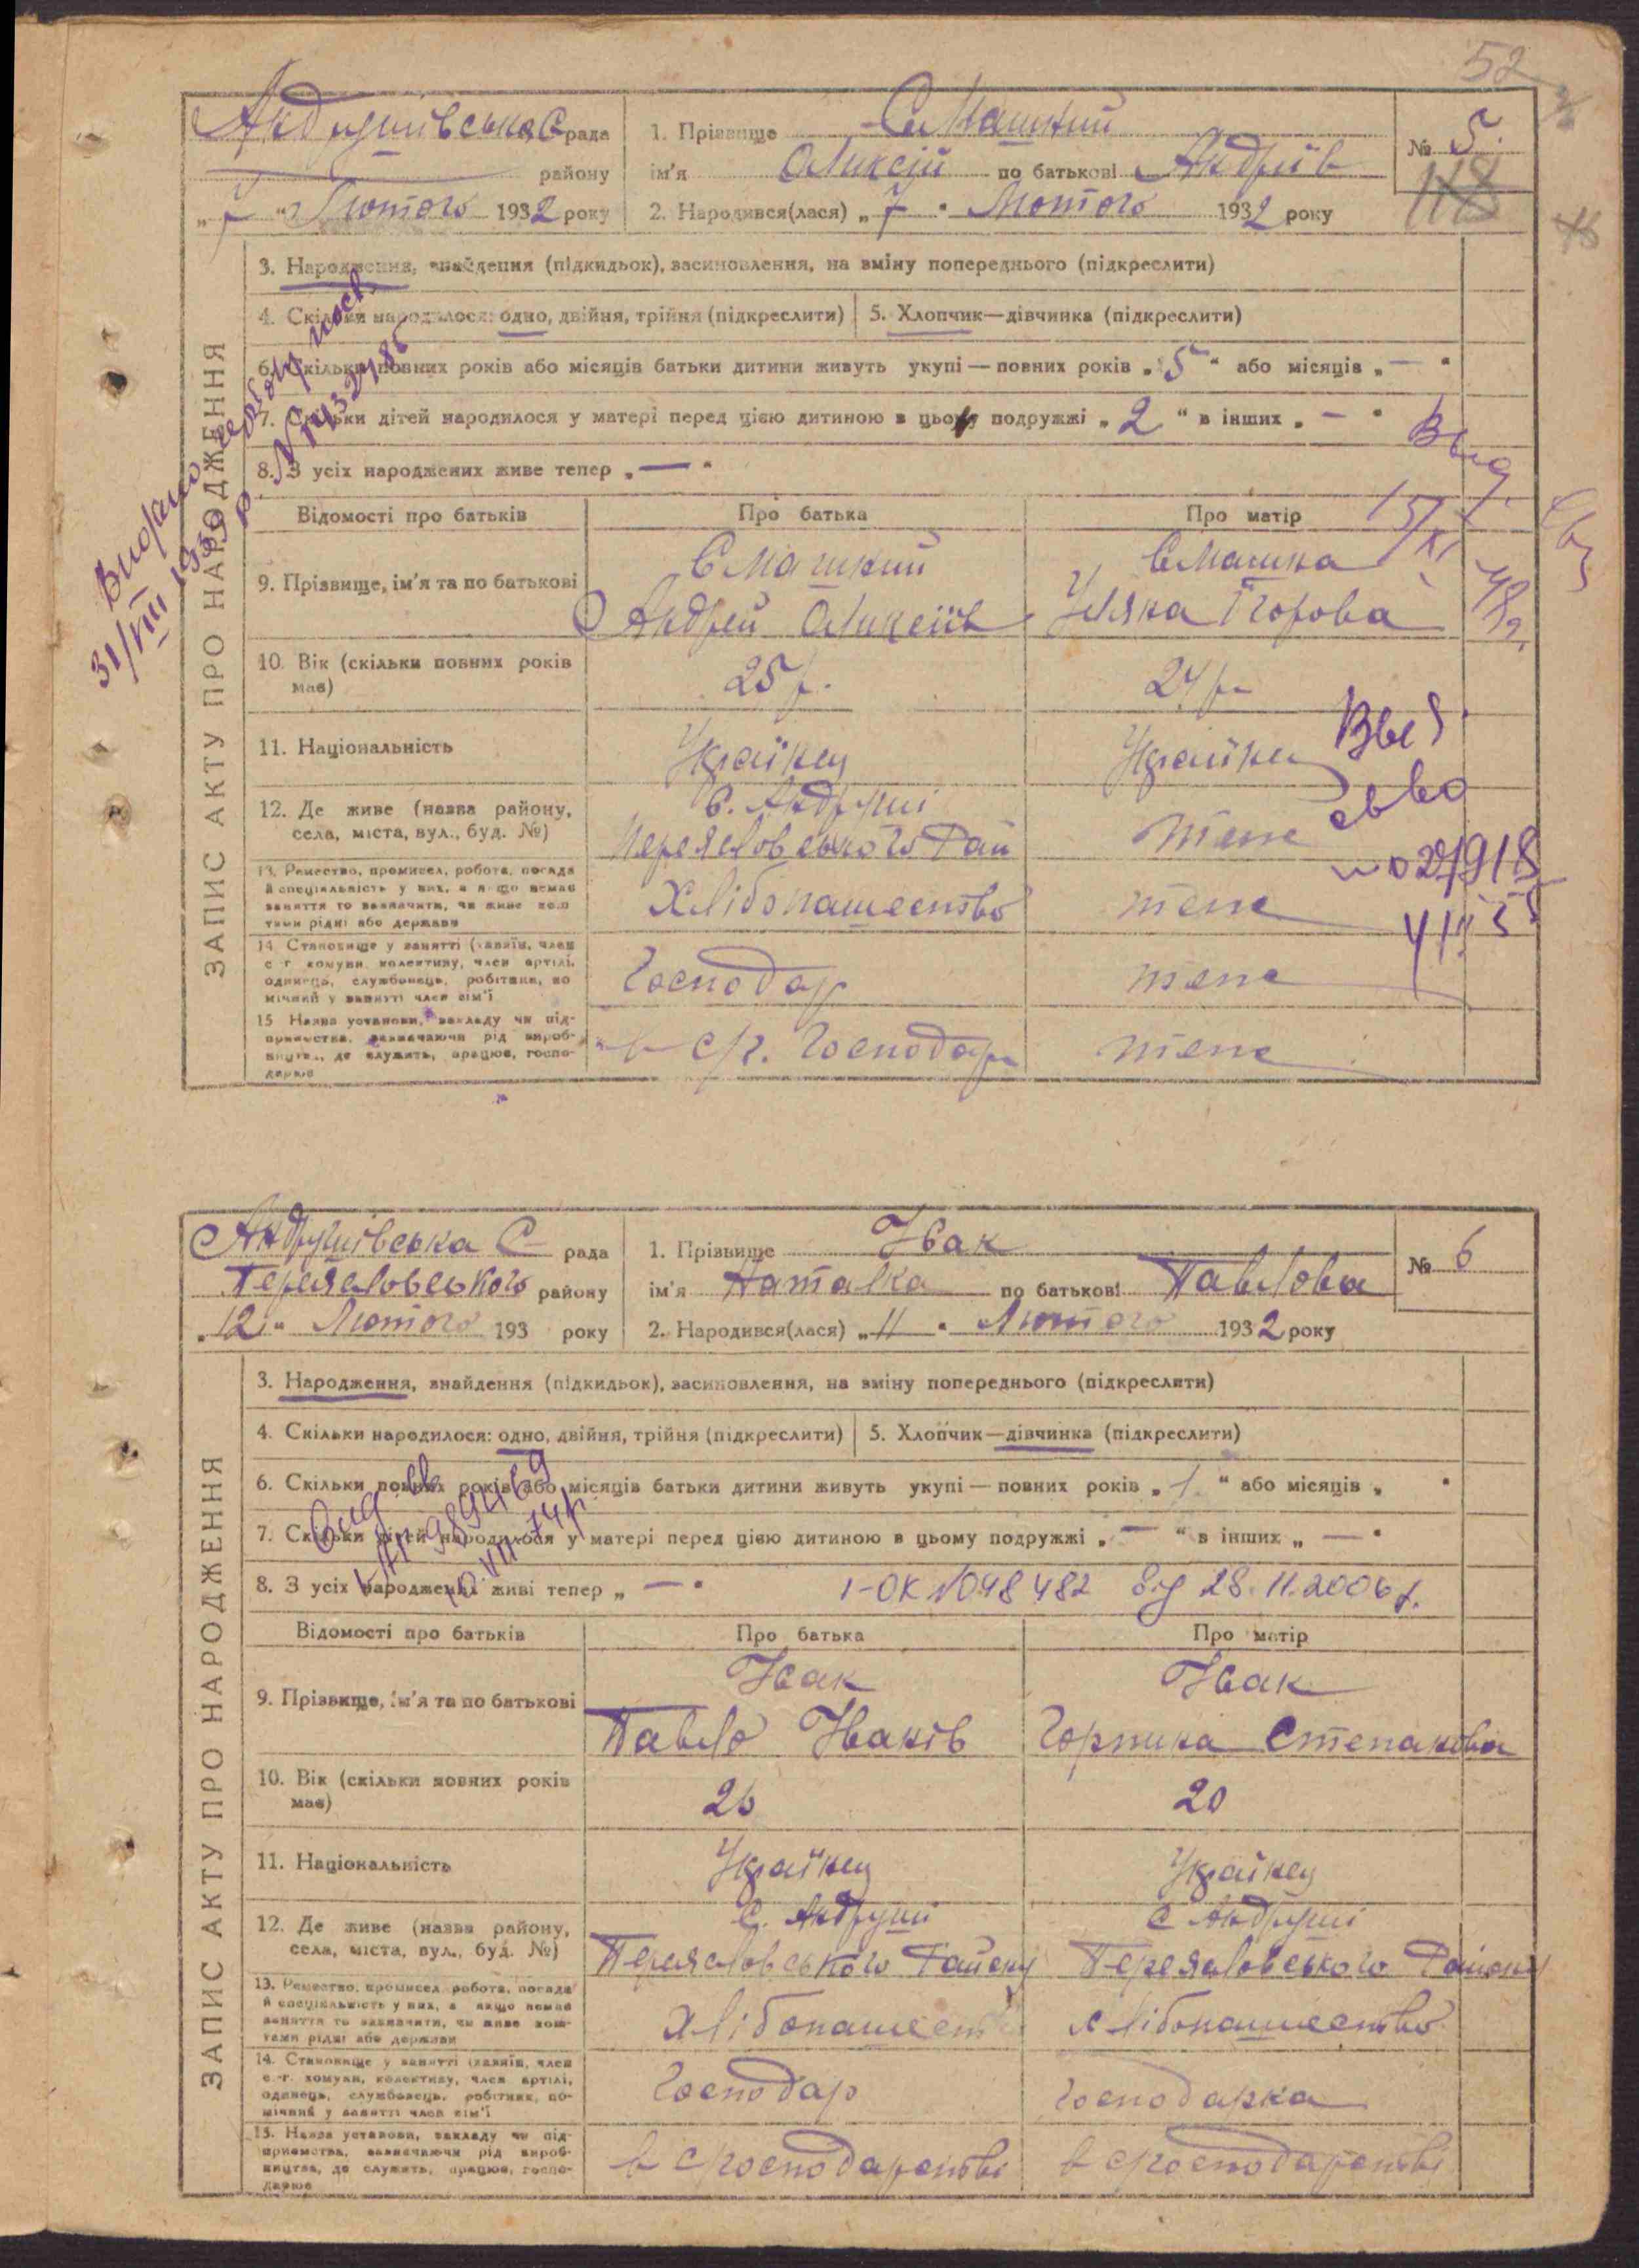 52
Андрушівська С рада
району
„ 7 “ Лютого 1932 року
1. Прізвище Смашний
ім'я Оликсій по батькові Андріїв
2. Народився(лася) „ 7 “ Лютого 1932 року
№ 5.
118
ЗАПИС АКТУ ПРО НАРОДЖЕННЯ
3. Народження, знайдення (підкидьок), засиновлення, на зміну попереднього (підкреслити)
4. Скільки народилося: одно, двійня, трійня (підкреслити)
5. Хлопчик—дівчинка (підкреслити)
6. Скільки повних років або місяців батьки дитини живуть укупі — повних років „ 5 “ або місяців „ — “
7. Скільки дітей народилося у матері перед цією дитиною в цьому подружжі „ 2 “ в інших „ — “
8. З усіх народжених живе тепер „ — “
31/VIII 1939 р.
Выд.
15/XI
Відомості про батьків
Про батька
Про матір
9. Прізвище, ім'я та по батькові
Смашний
Андрей Оликсіїв
Смашна
Уляна Ігорова
10. Вік (скільки повних років має)
25 р.
24 р.
11. Національність
Українец
Українец
12. Де живе (назва району, села, міста, вул., буд. №)
С. Андруші
Переяславського Рай
теж
13. Ремество, промисел, робота, посада й спеціяльність у них, а якщо немає заняття то зазначити, чи живе коштами рідні або держави
Хлібопашество
теж
14. Становище у занятті (хазяїн, член с.-г. комуни, колективу, член артілі, одинець, службовець, робітник, помічний у занятті член сім'ї
Господар
теж
15. Назва установи, закладу чи підприємства, зазначаючи рід виробництва, де служить, працює, господарює
в с/г. Господар
теж
Андрушівська С рада
Переяславського району
„ 12 “ Лютого 193 року
1. Прізвище Івак
ім'я Наталка по батькові Павлова
2. Народився(лася) „ 11 “ Лютого 1932 року
№ 6
ЗАПИС АКТУ ПРО НАРОДЖЕННЯ
3. Народження, знайдення (підкидьок), засиновлення, на зміну попереднього (підкреслити)
4. Скільки народилося: одно, двійня, трійня (підкреслити)
5. Хлопчик—дівчинка (підкреслити)
6. Скільки повних років або місяців батьки дитини живуть укупі — повних років „ 1 “ або місяців „ “
7. Скільки дітей народилося у матері перед цією дитиною в цьому подружжі „ — “ в інших „ — “
8. З усіх народжених живі тепер „ — “
1-ОК №048482 від 28.11.2006 р.
Відомості про батьків
Про батька
Про матір
9. Прізвище, ім'я та по батькові
Івак
Павло Іванів
Івак
Горпина Степанова
10. Вік (скільки повних років має)
26
20
11. Національність
Українец
Українец
12. Де живе (назва району, села, міста, вул., буд. №)
С. Андруші
Переяславського Району
С Андруші
Переяславського Району
13. Ремество, промисел, робота, посада й спеціяльність у них, а якщо немає заняття то зазначити, чи живе коштами рідні або держави
Хлібопашест
хлібопашество
14. Становище у занятті (хазяїн, член с.-г. комуни, колективу, член артілі, одинець, службовець, робітник, помічний у занятті член сім'ї
Господар
Господарка
15. Назва установи, закладу чи підприємства, зазначаючи рід виробництва, де служить, працює, господарює
в сгосподарстві
в сгосподарстві